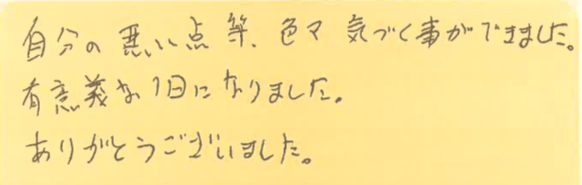 自分の悪い点等、色々気づく事ができました。
有意義な1日になりました。
ありがとうございました。